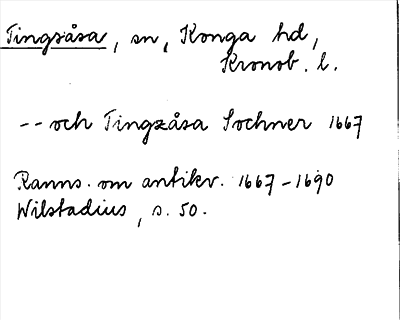 Tingsåsa, sn, Konga hd,
Kronob. l.
-- och Tingzåsa Sochner 1667
Ranns. om antikv. 1667-1690
Wilstadius, s. 50.